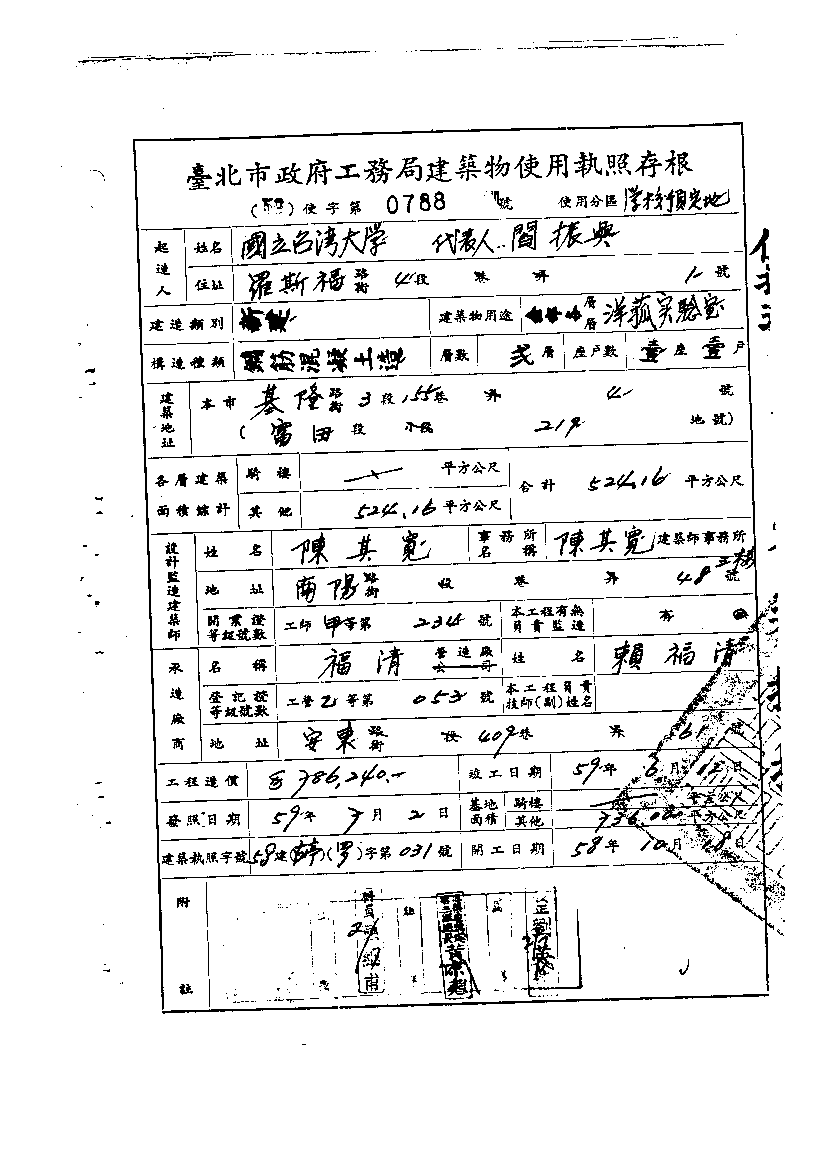 臺北市政府工務局建築物使用執照存根
(59)使字第 0788 號 使用分區 學校預定地
起造人 姓名 國立台湾大学 代表人..閻振興
住址 羅斯福 路街 4段 巷 弄 1 號
建造類別 新建 建築物用途 層層 洋菰实驗室
構造種類 鋼筋混凝土造 層數 弍層 座戶數 壹座壹戶
建築地址 本市 基隆 路街 3段155巷 弄 4 號
(富田段 小段 219 地號)
各層建築面積總計 騎樓 平方公尺 合計 524.16 平方公尺
其他 524.16 平方公尺
設計監造建築師 姓名 陳其寬 事務所名稱 陳其寬建築師事務所
地址 南陽 路街 段 巷 弄 48 號
開業證等級號數 工師甲等第 234 號 本工程有無負責監造 有
承造廠商 名稱 福清 營造廠公司 姓名 賴福清
登記證等級號數 工營乙等第 053 號 本工程負責技師(副)姓名
地址 安東 路街 段 409巷 弄 61 號
工程造價 786,240.- 竣工日期 59年6月12日
發照日期 59年7月2日 基地面積 騎樓 平方公尺
其他 736.00 平方公尺
建築執照字號 58建( )(罗)字第031號 開工日期 58年10月18日
附註